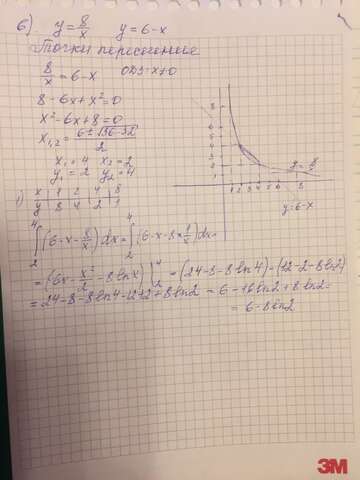 6) y = 8/x    y = 6-x
Точки пересечение
8/x = 6-x    ОДЗ: x≠0
8 - 6x + x² = 0
x² - 6x + 8 = 0
x₁,₂ = (6 ± √(36-32))/2
x₁ = 4  x₂ = 2
y₁ = 2  y₂ = 4
x | 1 | 2 | 4 | 8
y | 8 | 4 | 2 | 1
∫₂⁴ (6-x-8/x)dx = ∫₂⁴ (6-x-8*1/x)dx =
= (6x - x²/2 - 8lnx)|₂⁴ = (24-8-8ln4)-(12-2-8ln2)
= 24-8-8ln4-12+2+8ln2 = 6-16ln2+8ln2=
= 6-8ln2
y = 8/x
y=6-x
3M